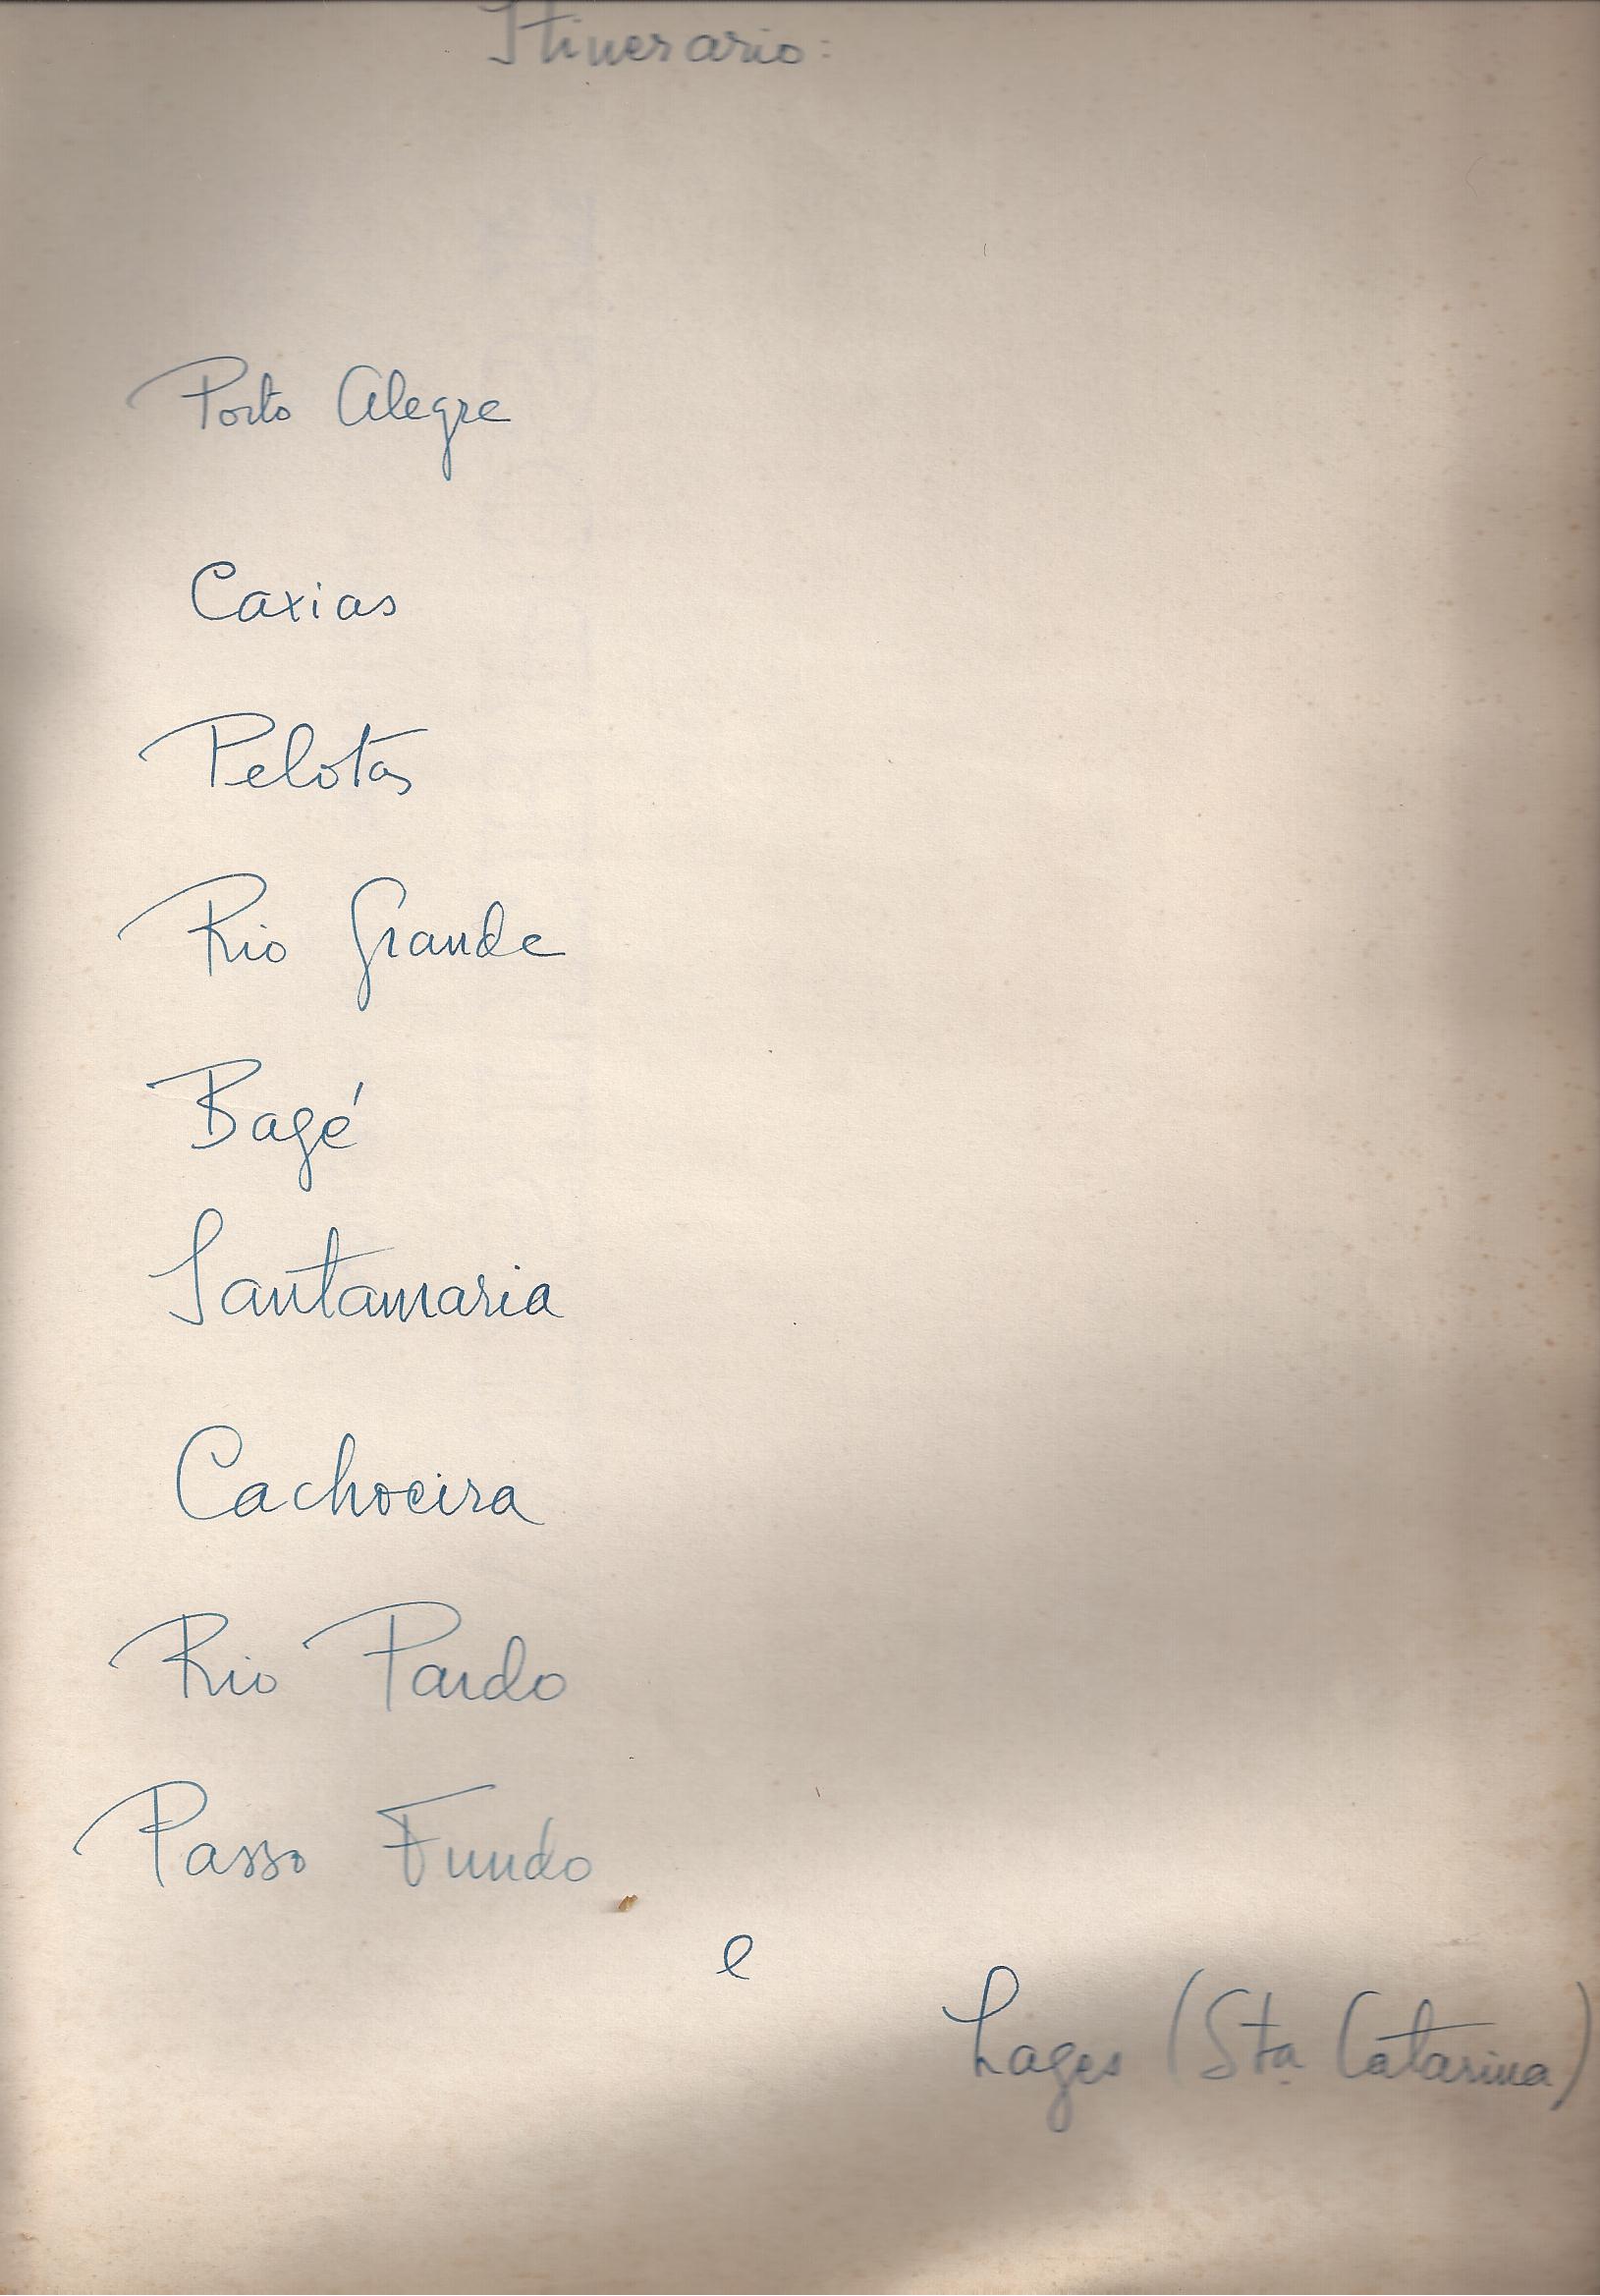 Itinerario:
Porto Alegre
Caxias
Pelotas
Rio Grande
Bagé
Santamaria
Cachoeira
Rio Pardo
Passo Fundo
e
Lages (Sta Catarina)